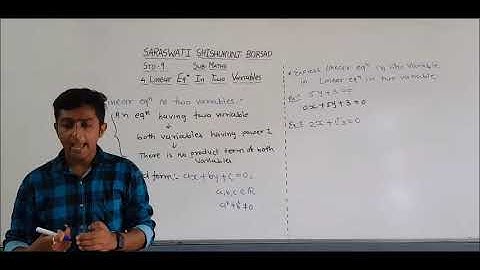 SARASWATI SHISHUKUNJ BORSAD
STD-9 SUB-MATHS
4 LINEAR EQⁿ IN TWO VARIABLES
Linear eqⁿ in two variables :-
An eqⁿ having two variable
both variables having power 1
There is no product term of both
variables
form :- ax + by + c = 0,
a, b, c ∈ R
a² + b² ≠ 0
* Express linear eqⁿ in one variable
in Linear eqⁿ in two variable,
0x + 5y + 3 = 0